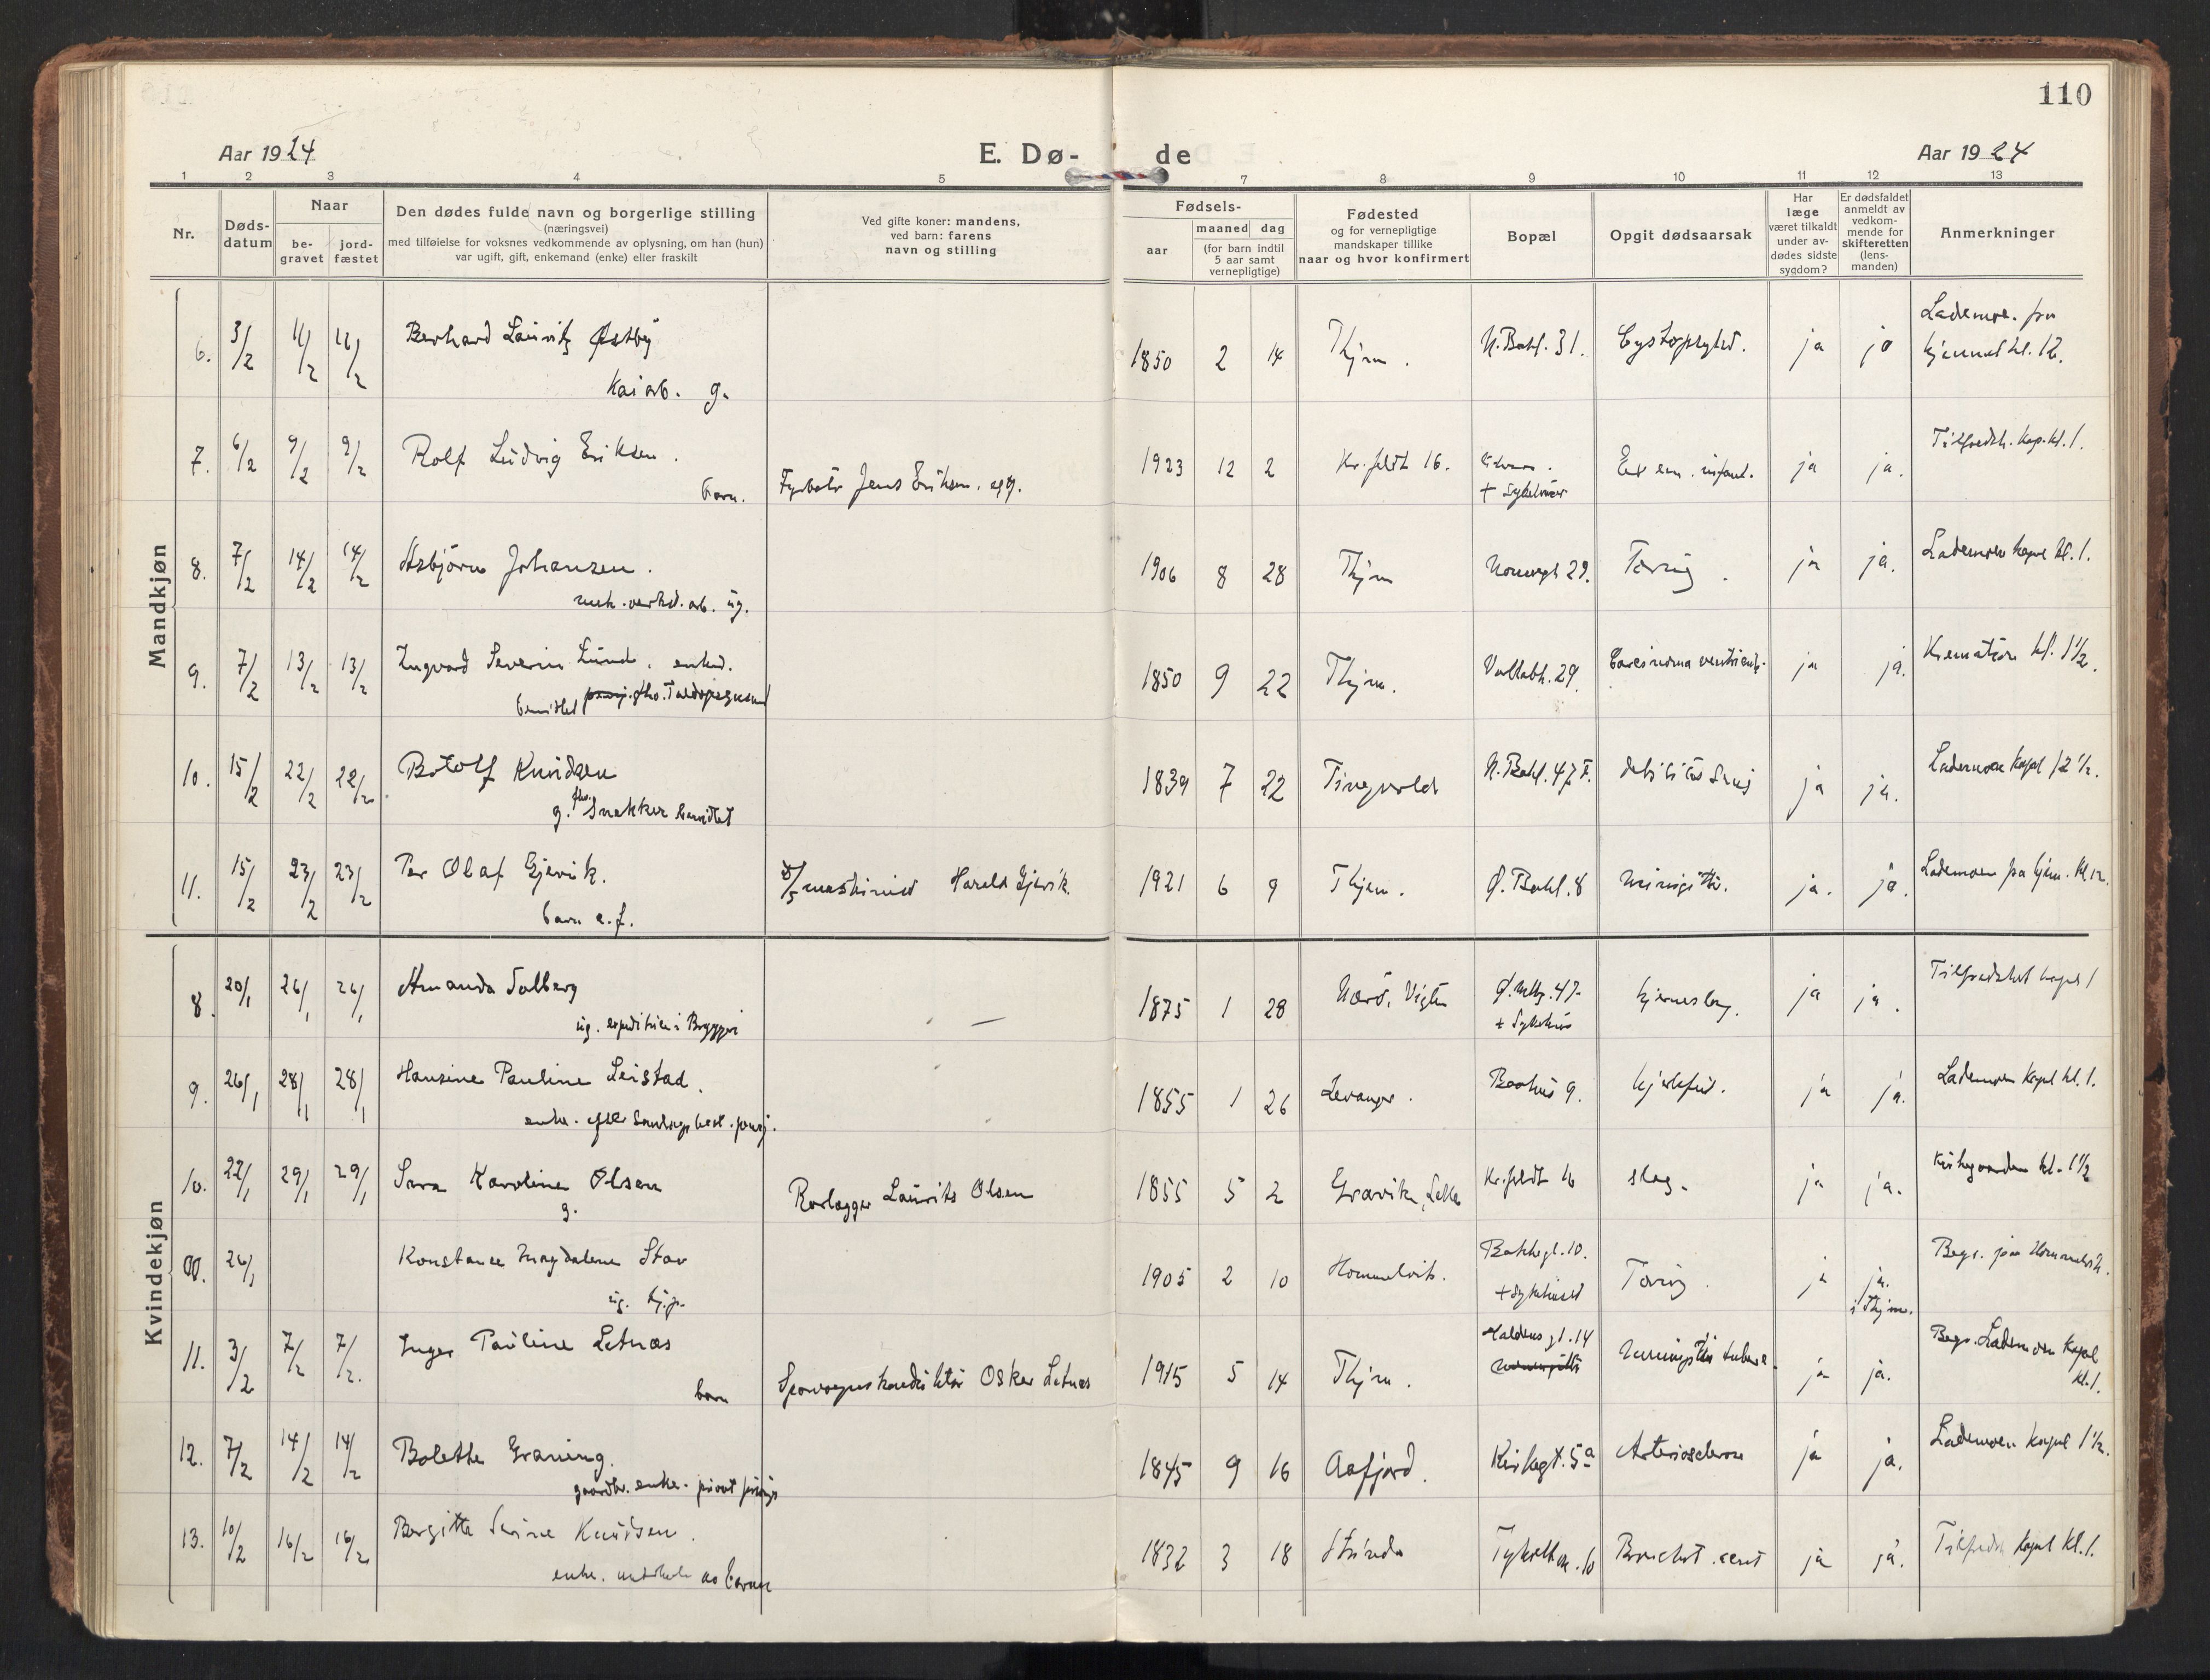 110
Aar 1924
E. Dø-
de
Aar 1924
1 2 3 4 5 7 8 9 10 11 12 13
Nr.
Døds-
datum
Naar
be-
gravet
jord-
fæstet
Den dødes fulde navn og borgerlige stilling
(næringsvei)
med tilføielse for voksnes vedkommende av oplysning, om han (hun)
var ugift, gift, enkemand (enke) eller fraskilt
Ved gifte koner: mandens,
ved barn: farens
navn og stilling
Fødsels-
aar
maaned dag
(for barn indtil
5 aar samt
vernepligtige)
Fødested
og for vernepligtige
mandskaper tillike
naar og hvor konfirmert
Bopæl
Opgit dødsaarsak
Har
læge
været tilkaldt
under av-
dødes sidste
sygdom?
Er dødsfaldet
anmeldt av
vedkom-
mende for
skifteretten
(lens-
manden)
Anmerkninger
Mandkjøn
6. 3/2 11/2 11/2 Berhard Lauritz Østby 1850 2 14 Thjm. N. Bakl. 31. ja ja Lademoe. fra
hjemmet kl. 12.
Kaiarb. g.
7. 6/2 9/2 9/2 Rolf Ludvig Eriksen. 1923 12 2 Kr. feldt 16. ja ja. Tilfredsh. kap. kl. 1.
barn. Fyrbøter Jens Eriksen. og g. + Sykehuset
8. 7/2 14/2 14/2 Asbjørn Johansen. 1906 8 28 Thjm 29. Tæring. ja ja. Lademoen kapel kl. 1.
mek. verkst. arb. ug.
9. 7/2 13/2 13/2 Ingvard Severin Lund. enkem. 1850 9 22 Thjm. Vollabk. 29. Carcinoma ventriculi ja ja. Krematori kl. 1 1/2
10. 15/2 22/2 22/2 Botolf Knudsen 1839 7 22 Tingvold N. Bakl. 47 debilitas senis ja ja. Lademoen kapel 12 1/2.
g. fhv. Snekker
11. 15/2 23/2 23/2 Per Olaf Gjervik. D/S maskinist Harald Gjervik. 1921 6 9 Thjem. Ø. Bakl. 8 meningitt. ja. ja. Lademoen fra hjem. kl 12.
barn e. f.
Kvindekjøn
8. 20/1 26/1 26/1 Amanda Solberg — 1875 1 28 Nærø, Vigten 47 hjernesl. ja ja. Tilfredshet kapel 1
ug. i Bryggeri + Sykehus
9. 26/1 28/1 28/1 Hansine Pauline Leistad. 1855 1 26 Levanger. Baahus 9. hjertefeil. ja ja. Lademoen kapel kl. 1.
enke. efter
10. 22/1 29/1 29/1 Sara Karoline Olsen Rørlegger Laurits Olsen 1855 5 2 Gravik, Leka Kr. feldt 16 slag. ja ja. Kirkegaarden kl. 1 1/2
g.
00. 26/1 Konstance Magdalene Stav 1905 2 10 Hommelvik. Bakkegt. 10. Tæring. ja ja. Begr. paa Hommelvik.
ug. + Sykehuset i Thjm.
11. 3/2 7/2 7/2. Inger Pauline Letnæs 1915 5 14 Thjm. 14 Meningitis tuberc. ja ja. Begr. Lademoen kapel
kl. 1.
barn Sporvognskonduktør Oskar Letnæs
12. 7/2 14/2 14/2 Bolette Graning. 1845 9 16 Aafjord. Kirkegt. 5a Arteriosclerose ja ja. Lademoen kapel 1 1/2.
gaardbr. enke.
13. 10/2 16/2 16/2 Bergitte Serine Knudsen. 1832 3 18 Strinda 10 ja ja. Tilfredsh kapel kl. 1.
enke. av barna